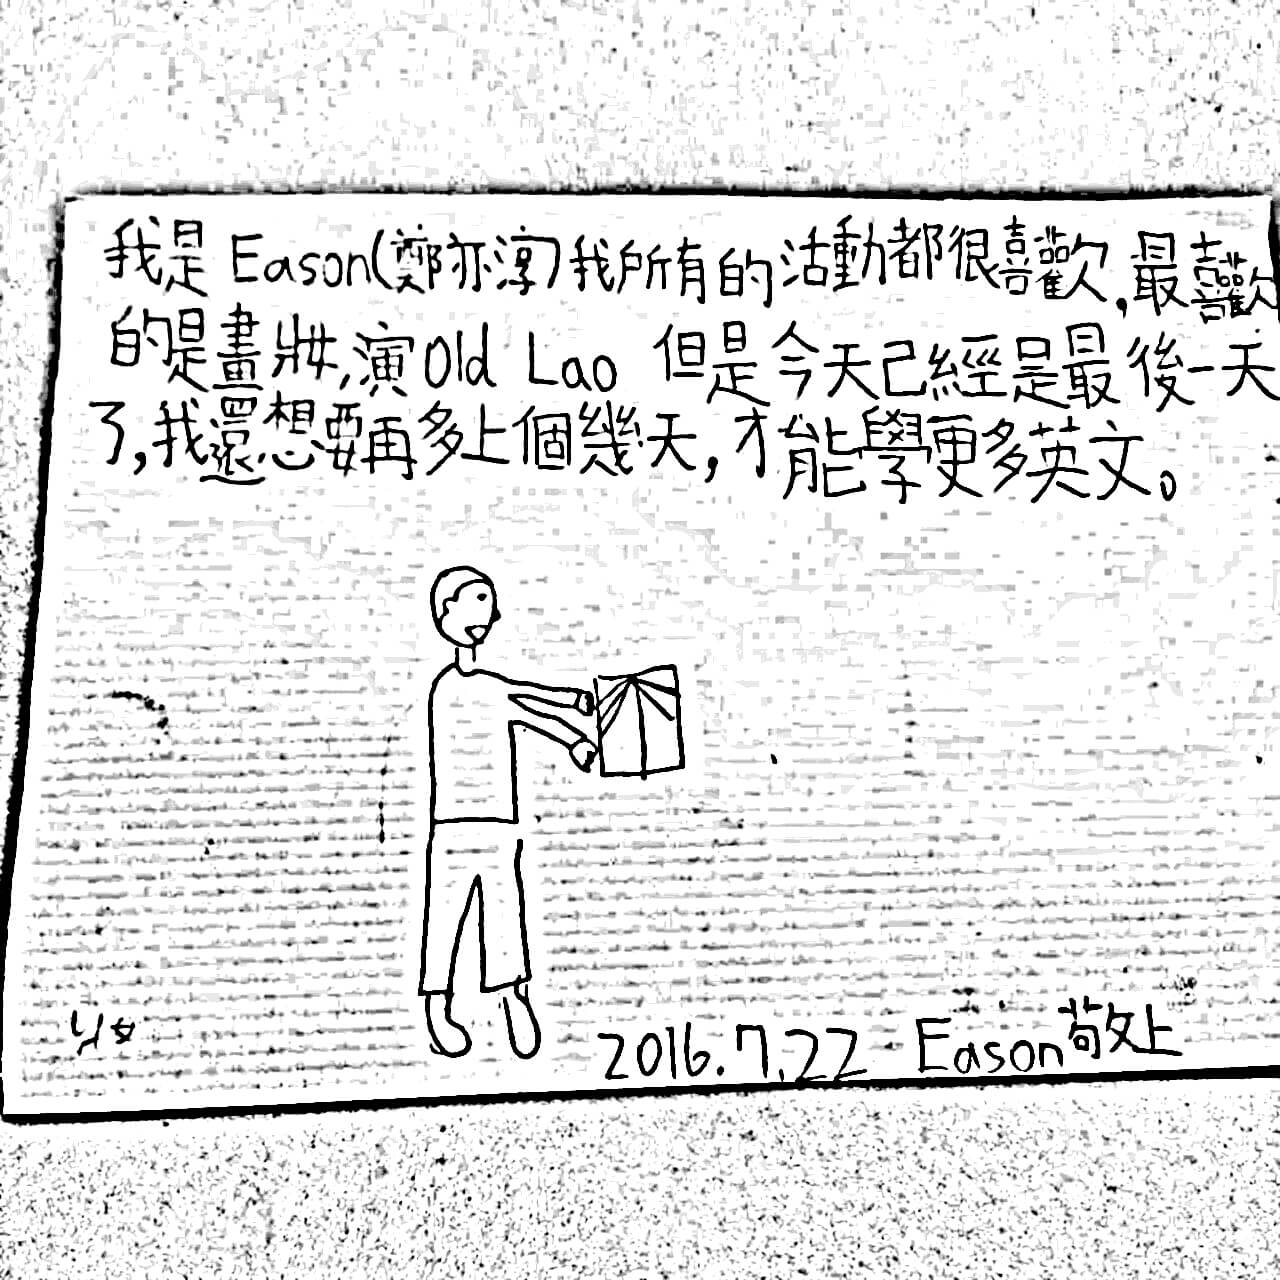 我是 Eason(鄭亦淳)我所有的活動都很喜歡,最喜歡
的是畫妝,演Old Lao 但是今天己經是最後一天
了,我還想要再多上個幾天,才能學更多英文。
2016.7.22 Eason敬上